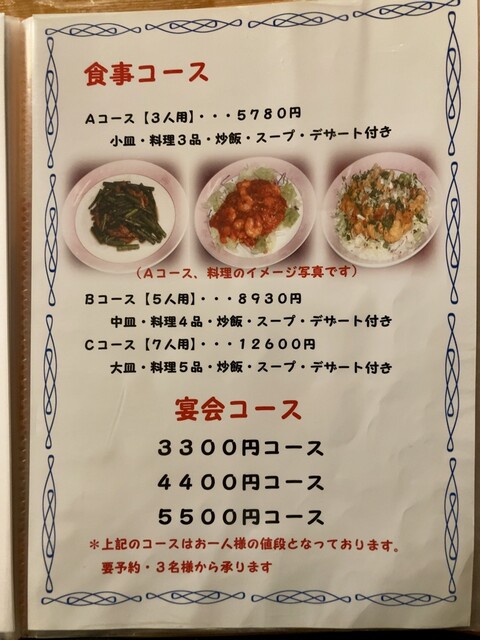 食事コース
Aコース【3人用】・・・5780円
小皿・料理3品・炒飯・スープ・デザート付き
(Aコース、料理のイメージ写真です)
Bコース【5人用】・・・8930円
中皿・料理4品・炒飯・スープ・デザート付き
Cコース【7人用】・・・12600円
大皿・料理5品・炒飯・スープ・デザート付き
宴会コース
3300円コース
4400円コース
5500円コース
*上記のコースはお一人様の値段となっております。
要予約・3名様から承ります